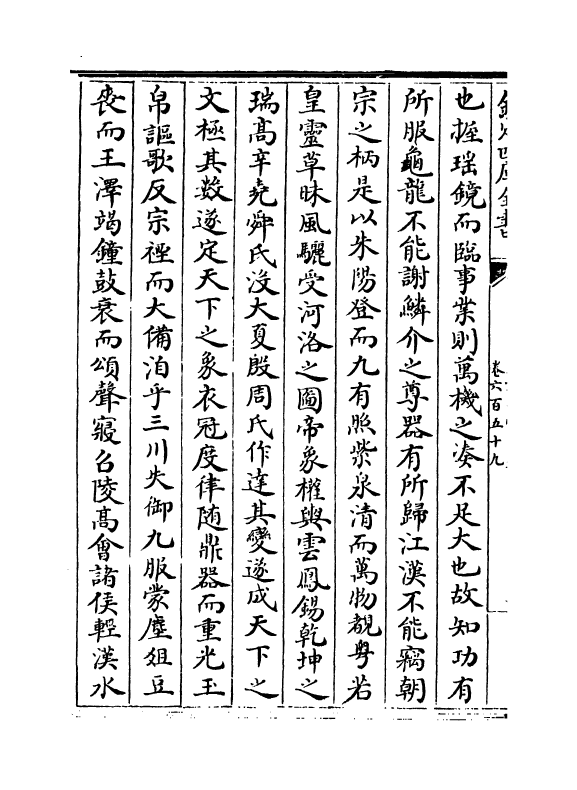 欽定四庫全書
卷六百五十九
也握瑶鏡而臨事業則萬機之湊不足大也故知功有
所服龜龍不能謝鱗介之尊器有所歸江漢不能竊朝
宗之柄是以朱陽登而九有照紫泉清而萬物覩粤若
皇靈草昧風驪受河洛之圖帝象權輿雲鳳錫乾坤之
瑞高辛堯舜氏没大夏殷周氏作達其變遂成天下之
文極其數遂定天下之象衣冠度律随鼎器而重光玉
帛謳歌反宗禋而大備洎乎三川失御九服蒙塵俎豆
喪而王澤竭鐘鼓衰而頌聲寢召陵高會諸侯輕漢水